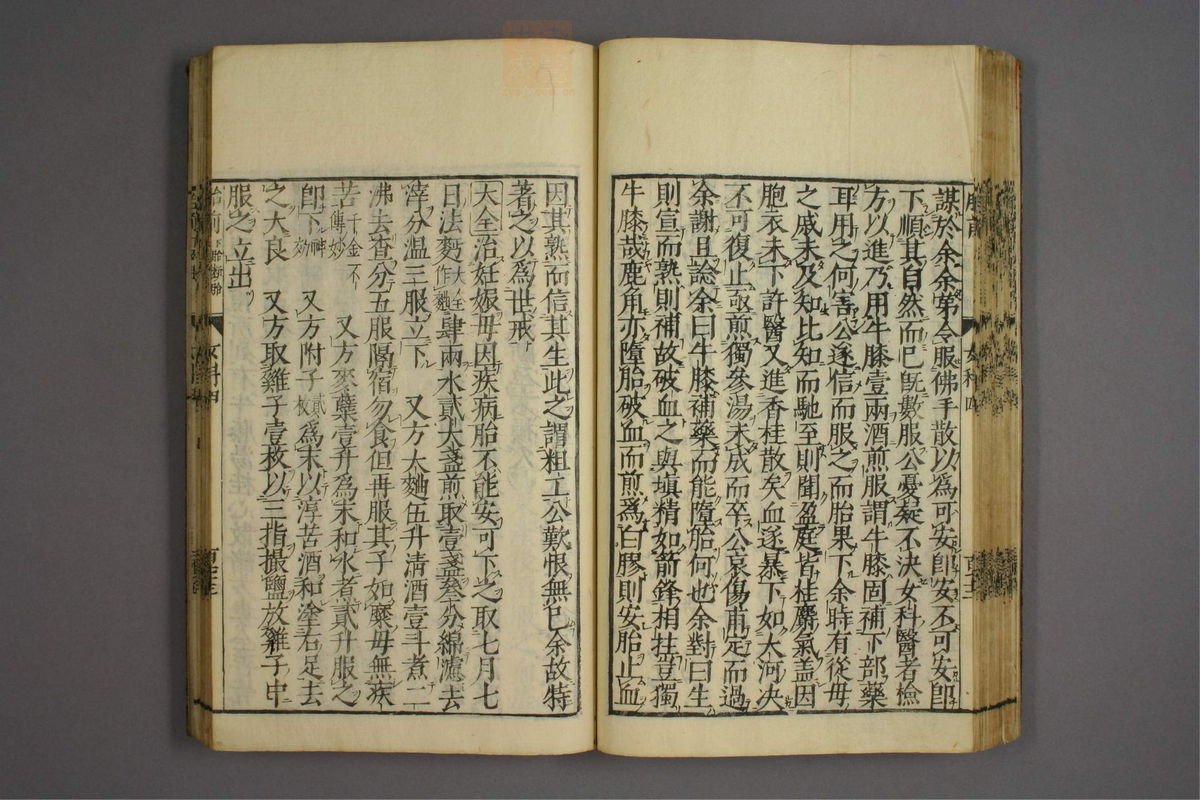 謀於余余第令服佛手散以爲可安卽安不可安卽
下順其自然而已旣數服公憂疑不決女科醫者檢
方以進乃用牛膝壹兩酒煎服謂牛膝固補下部藥
耳用之何害公遂信而服之而胎果下余時有從母
之戚未及知比知而馳至則聞盈庭皆桂麝氣盖因
胞衣未下許醫又進香桂散矣血遂暴下如大河決
不可復止亟煎獨參湯未成而卒公哀傷甫定而過
余謝且諗余曰牛膝補藥而能墮胎何也余對曰生
則宣而熟則補故破血之與塡精如箭鋒相拄豈獨
牛膝哉鹿角亦墮胎破血而煎爲白膠則安胎止血
因其熟而信其生此之謂粗工公歎恨無已余故特
著之以爲世戒
大全治妊娠母因疾病胎不能安可下之取七月七
日法麪大全作麹肆兩水貳大盞煎取壹盞叁分綿濾去
滓分温三服立下 又方大麯伍升淸酒壹斗煮二
沸去查分五服隔宿勿食但再服其子如糜母無疾
苦千金不傳妙 又方麥蘗壹升爲末和水煮貳升服之
卽下神効 又方附子貳枚爲末以淳苦酒和塗右足去
之大良 又方取雞子壹枚以三指撮鹽放雞子中
服之立出
女科四